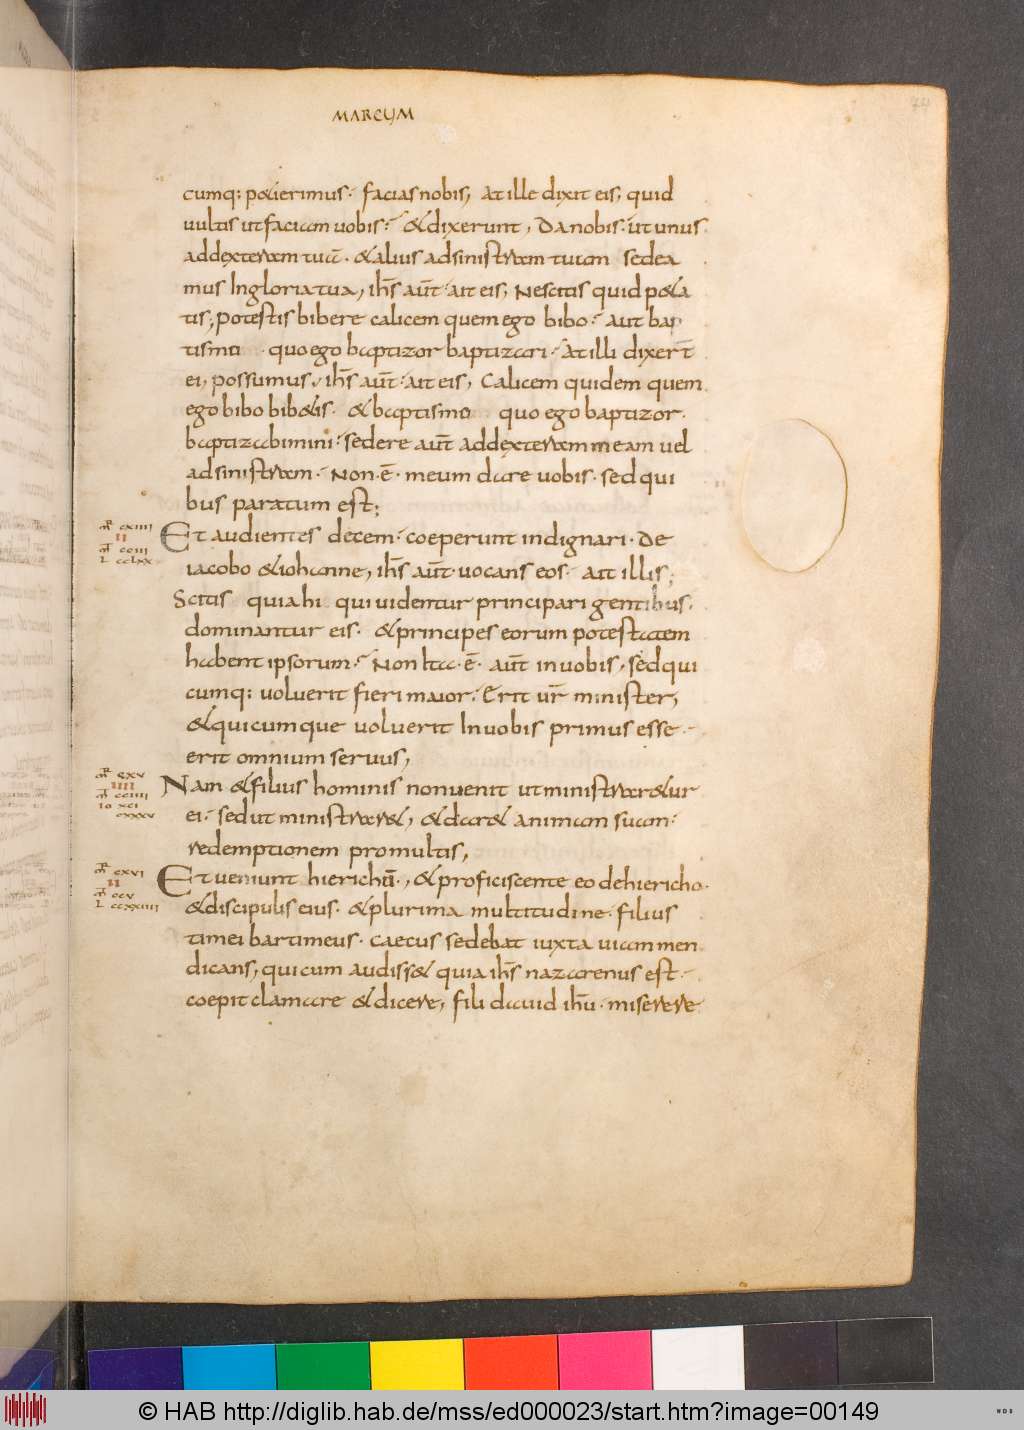 MARCUM
74
cumq; p&ierimus. facias nobis, At ille dixit eis, quid
uultis ut faciam uobis? & dixerunt, Da nobis. ut unus
ad dexteram tuā. & alius ad sinistram tuam sedea
mus In gloria tua, ihs aūt. ait eis, Nescitis quid p&a
tis, potestis bibere calicem quem ego bibo. Aut bap
tismo quo ego baptizor baptizari. At illi dixert̄
ei, possumus, ihs aūt. ait eis, Calicem quidem quem
ego bibo bib&is. & baptismo quo ego baptizor.
baptizabimini. sedere aūt ad dexteram meam uel
ad sinistram. Non.ē. meum dare uobis. sed qui
bus paratum est;
mr cxiiii
II
mt cciii
L cclxx
Et audientes decem. coeperunt indignari. De
iacobo & iohanne, ihs aūt. uocans eos. ait illis;
Scitis quia hi qui uidentur principari gentibus.
dominantur eis. & principes eorum potestatem
habent ipsorum. Non ita.ē. aūt in uobis, sed qui
cumq; uoluerit fieri maior. Erit ur̄ minister,
& quicumque voluerit In uobis primus esse.
erit omnium seruus,
mr cxv
IIII
mt cciiii
Io xci
cxxxv
Nam & filius hominis non uenit ut ministrar&ur
ei. sed ut ministrar&, & dar& animam suam.
redemptionem pro multis,
mr cxvi
II
mt ccv
L ccxxiiii
Et ueniunt hierichū., & proficiscente eo de hiericho.
& discipulis eius. & plurima multitudine. filius
timei bartimeus. caecus sedebat iuxta uiam men
dicans, qui cum audiss& quia ihs nazarenus est.
coepit clamare & dicere, fili dauid ihū. miserere
© HAB http://diglib.hab.de/mss/ed000023/start.htm?image=00149
WDB